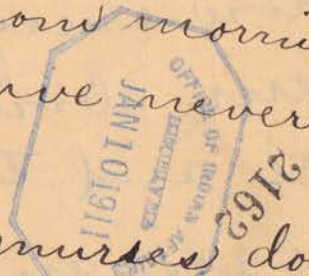 morni
never
OFFICE OF INDIAN
RECEIVED
JAN 10 1911
2162
nurses do